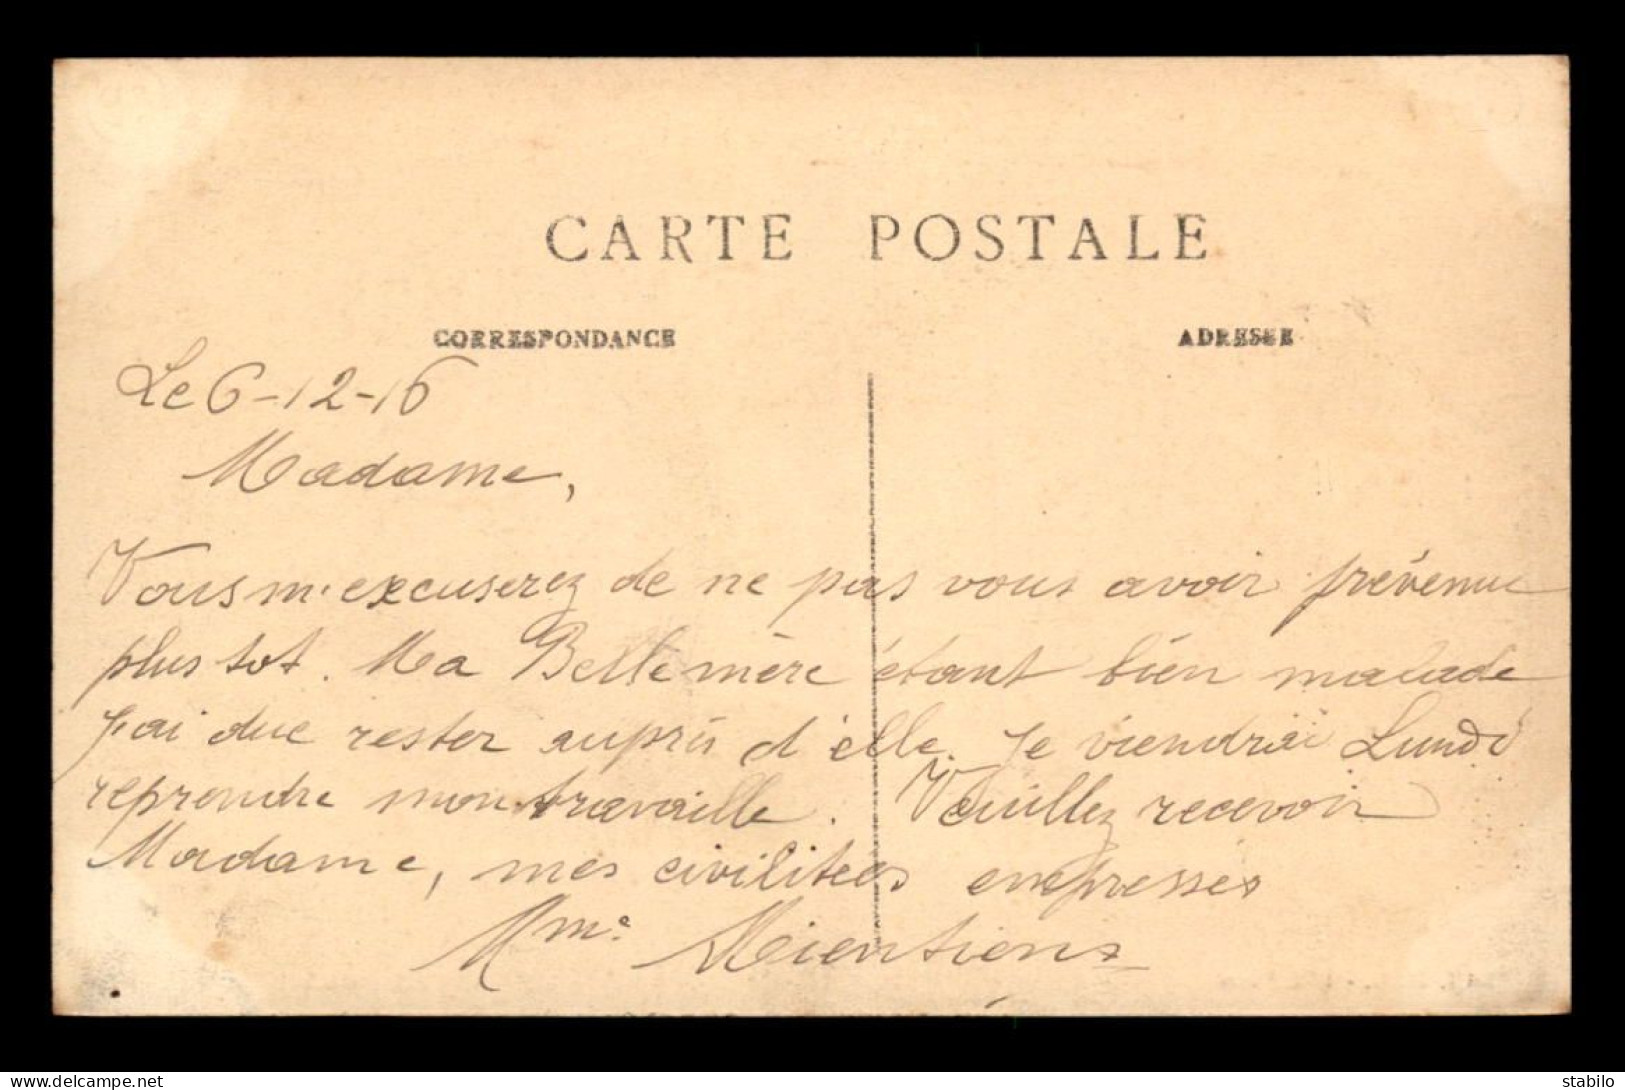 CARTE POSTALE
CORRESPONDANCE
ADRESSE
Le 6-12-16
Madame,
Vous m'excuserez de ne pas vous avoir prévenue
plus tot. Ma Belle mère étant bien malade
j'ai due rester auprès d'elle. Je viendrai Lundi
reprendre mon travaille. Veuillez recevoir
Madame, mes civilitées empressés
Mme
www.delcampe.net
stabilo